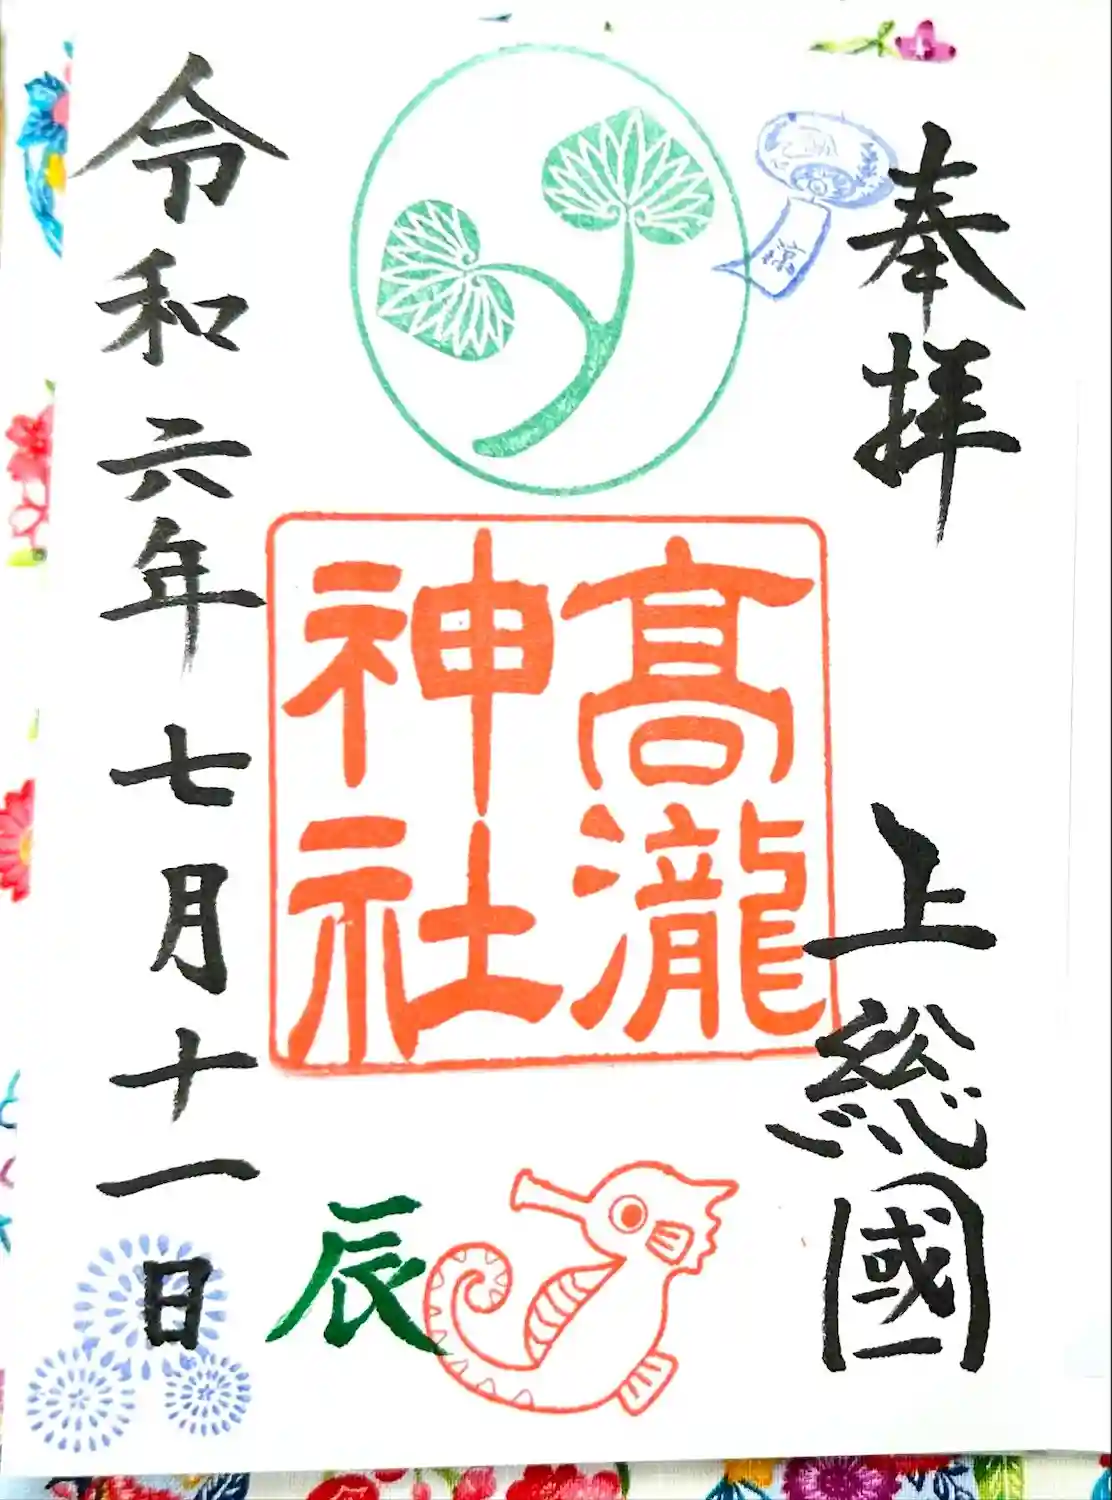 奉拝
上総國
髙瀧
神社
辰
令和六年七月十一日